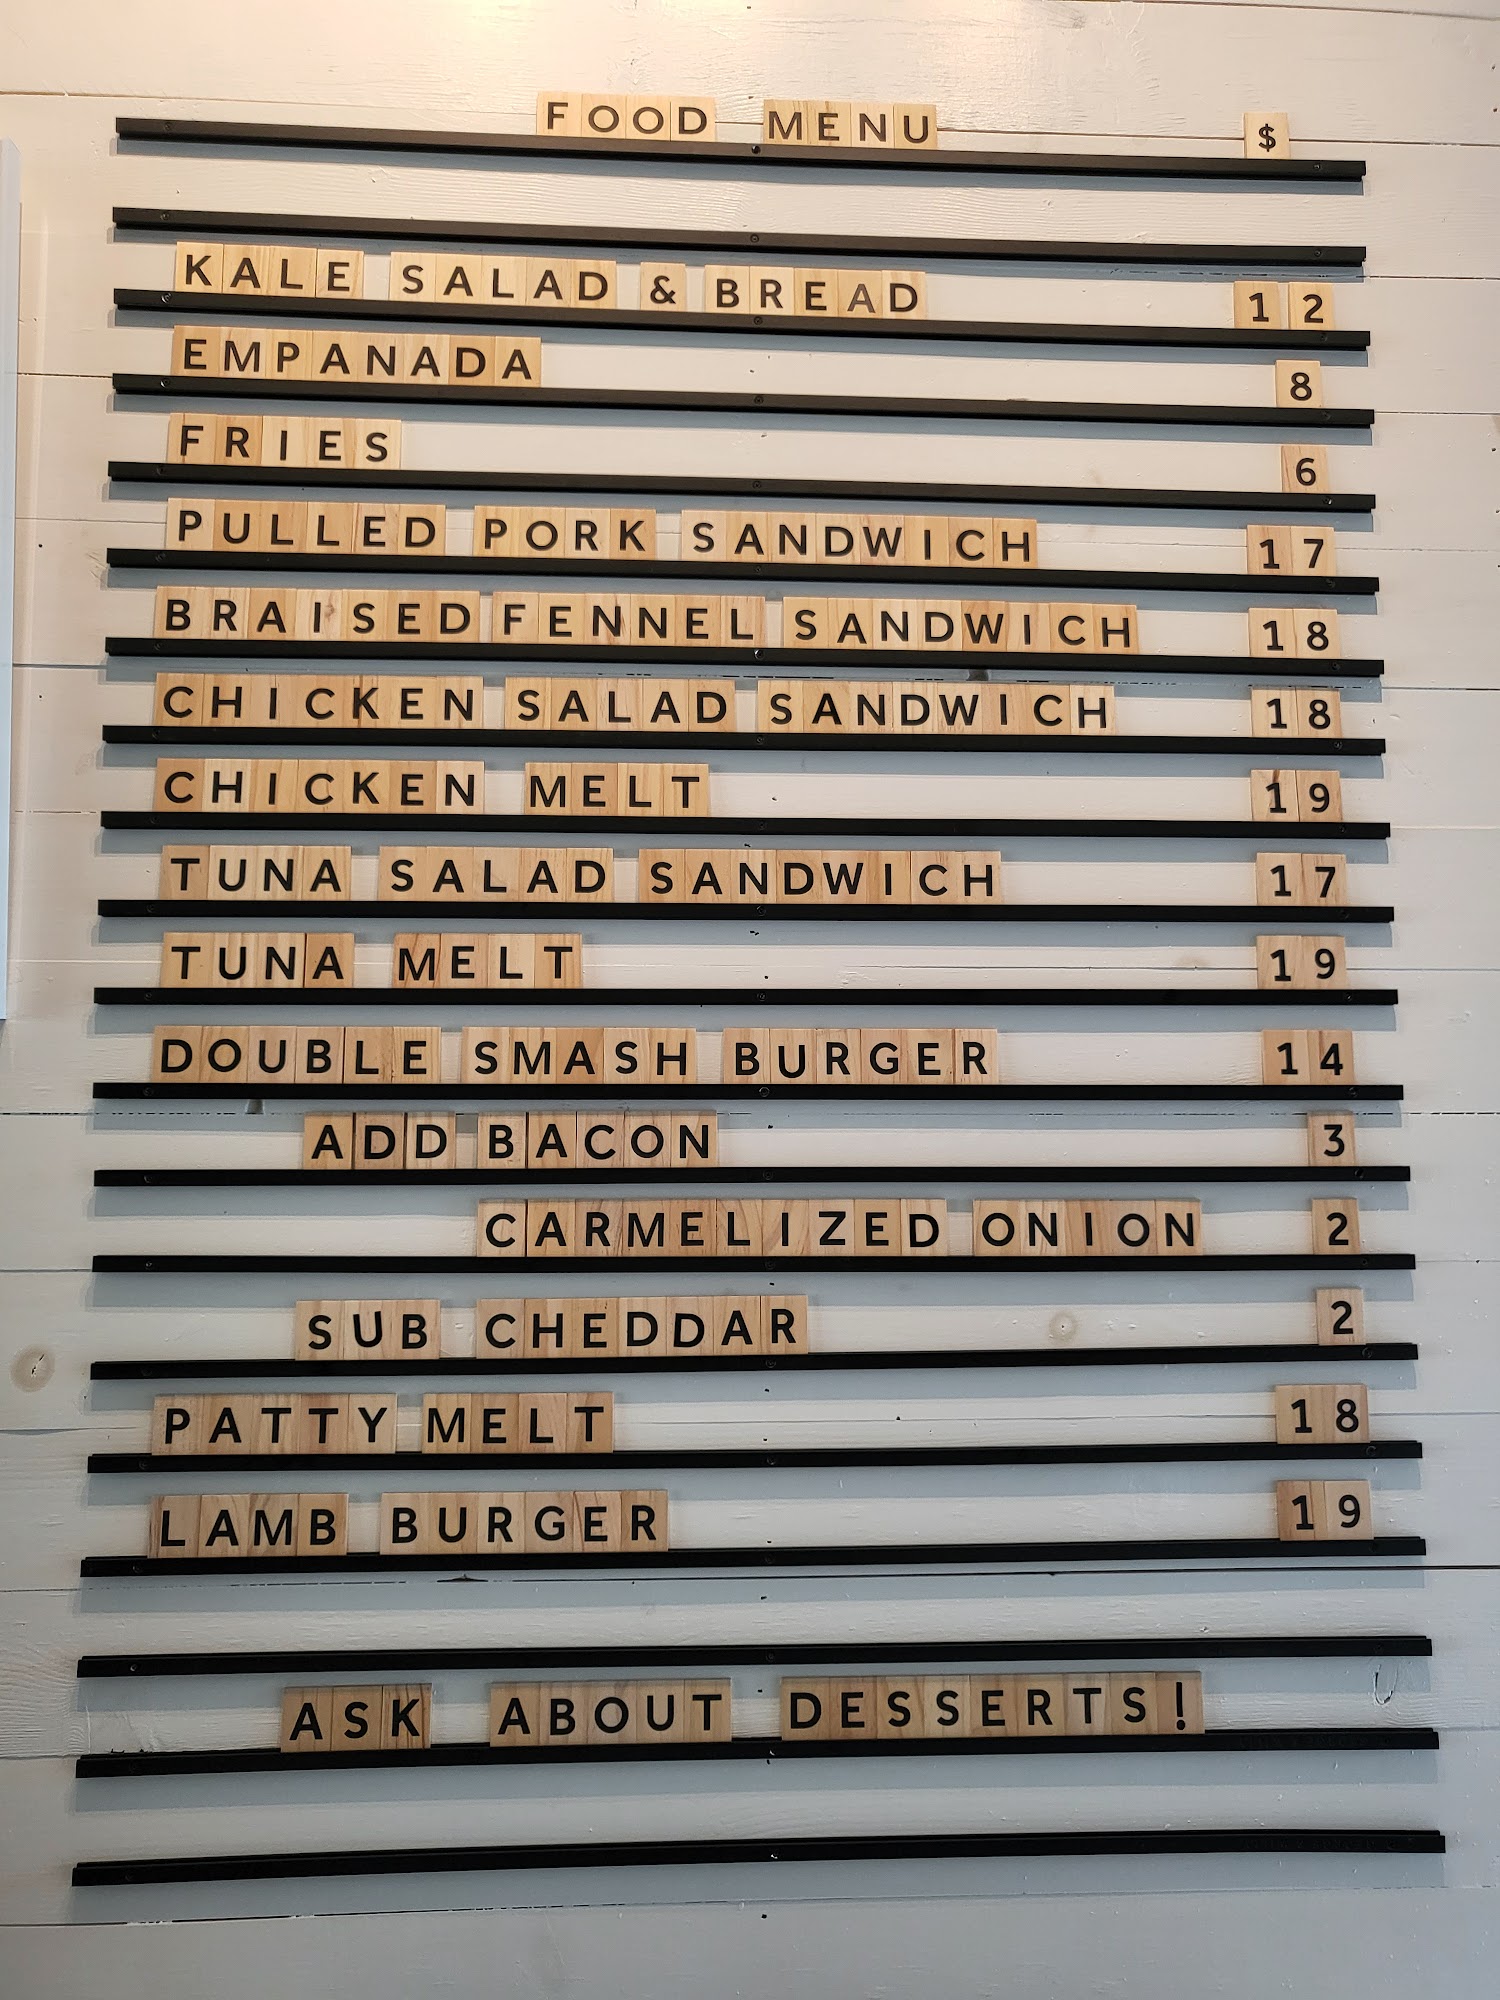 FOOD MENU $
KALE SALAD & BREAD 12
EMPANADA 8
FRIES 6
PULLED PORK SANDWICH 17
BRAISED FENNEL SANDWICH 18
CHICKEN SALAD SANDWICH 18
CHICKEN MELT 19
TUNA SALAD SANDWICH 17
TUNA MELT 19
DOUBLE SMASH BURGER 14
ADD BACON 3
CARMELIZED ONION 2
SUB CHEDDAR 2
PATTY MELT 18
LAMB BURGER 19
ASK ABOUT DESSERTS!